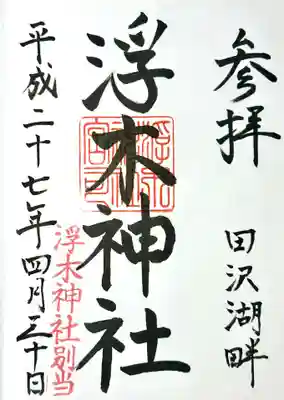 参拝
田沢湖畔
浮木神社
浮木神社別当
平成二十七年四月三十日